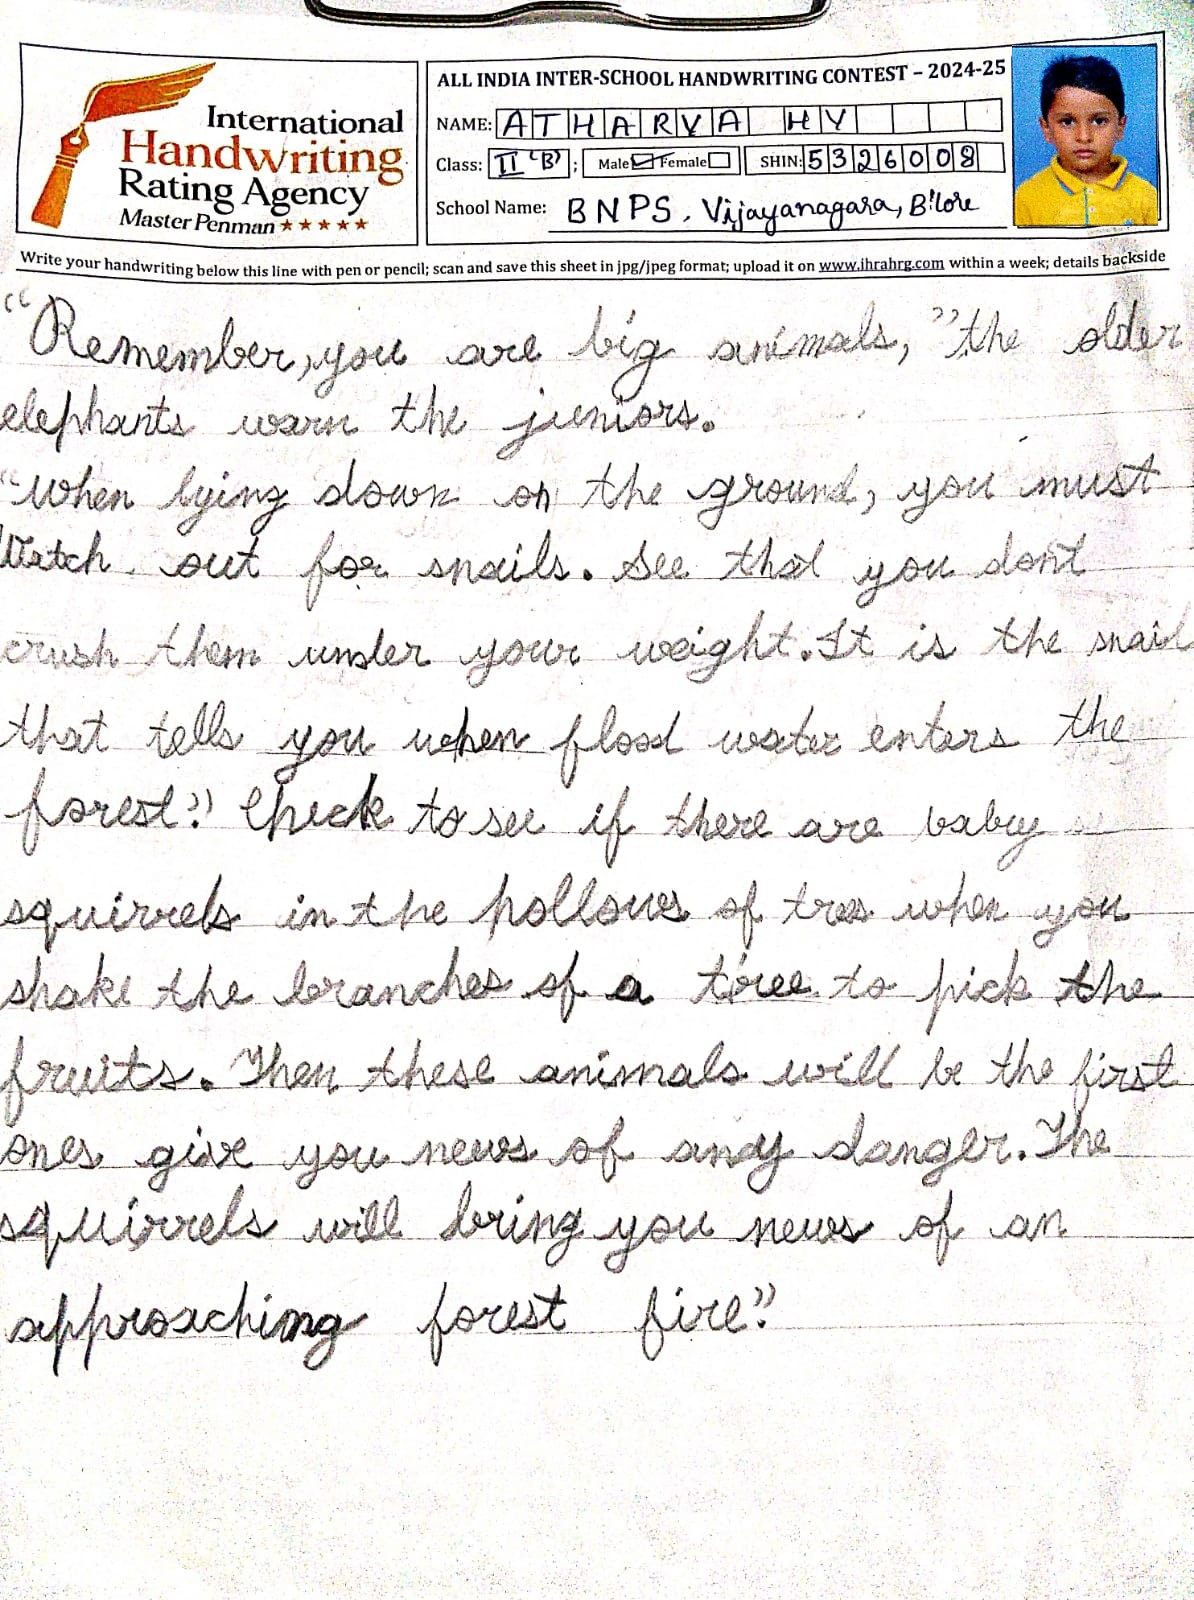 International
Handwriting
Rating Agency
Master Penman ★★★★★
ALL INDIA INTER-SCHOOL HANDWRITING CONTEST – 2024-25
NAME: ATHARVA HY
Class: II 'B'; Male Female SHIN: 5326008
School Name: BNPS, Vijayanagara, B'lore
Write your handwriting below this line with pen or pencil; scan and save this sheet in jpg/jpeg format; upload it on www.ihrahrg.com within a week; details backside
"Remember, you are big animals," the older
elephants warn the juniors.
"When lying down on the ground, you must
Watch out for snails. See that you dont
crush them under your weight. It is the snail
that tells you when flood water enters the
forest." Check to see if there are baby
squirrels in the hollows of trees when you
shake the branches of a tree to pick the
fruits. Then these animals will be the first
ones give you news of any danger. The
squirrels will bring you news of an
approaching forest fire."